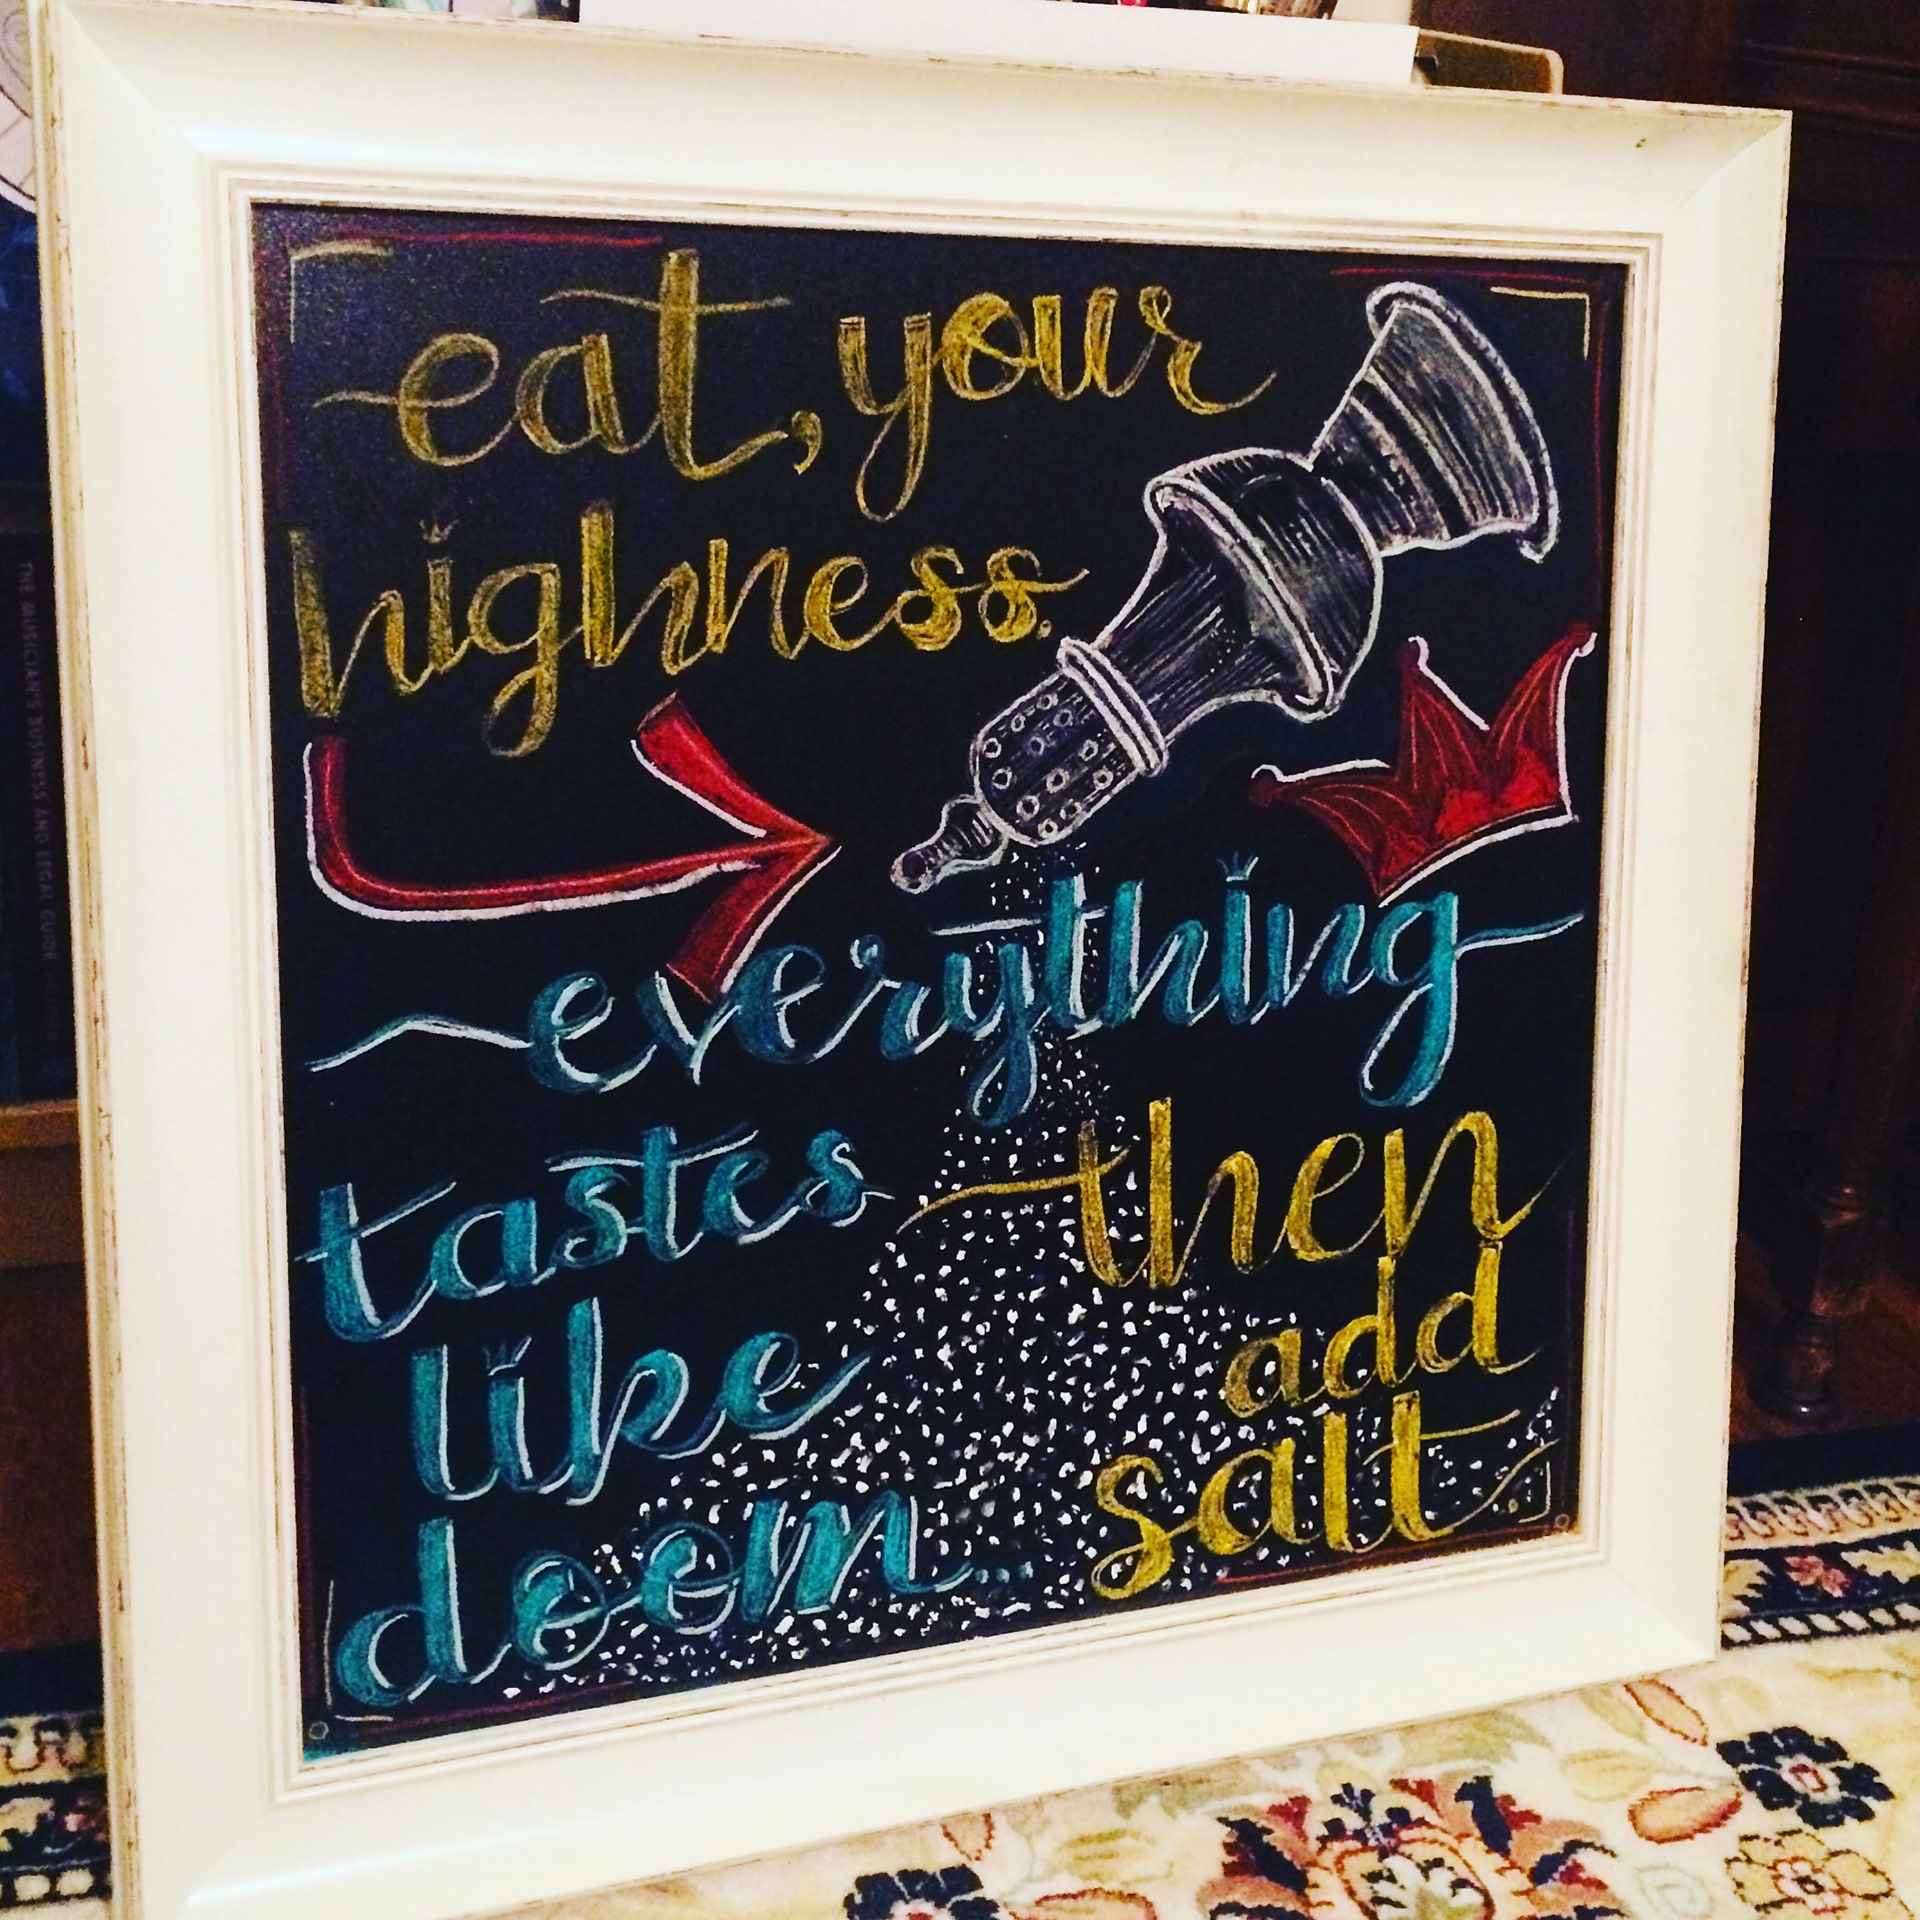 eat, your
highness.
everything
tastes
like
doom...
then
add
salt
THE MUSICIAN'S BUSINESS AND LEGAL GUIDE